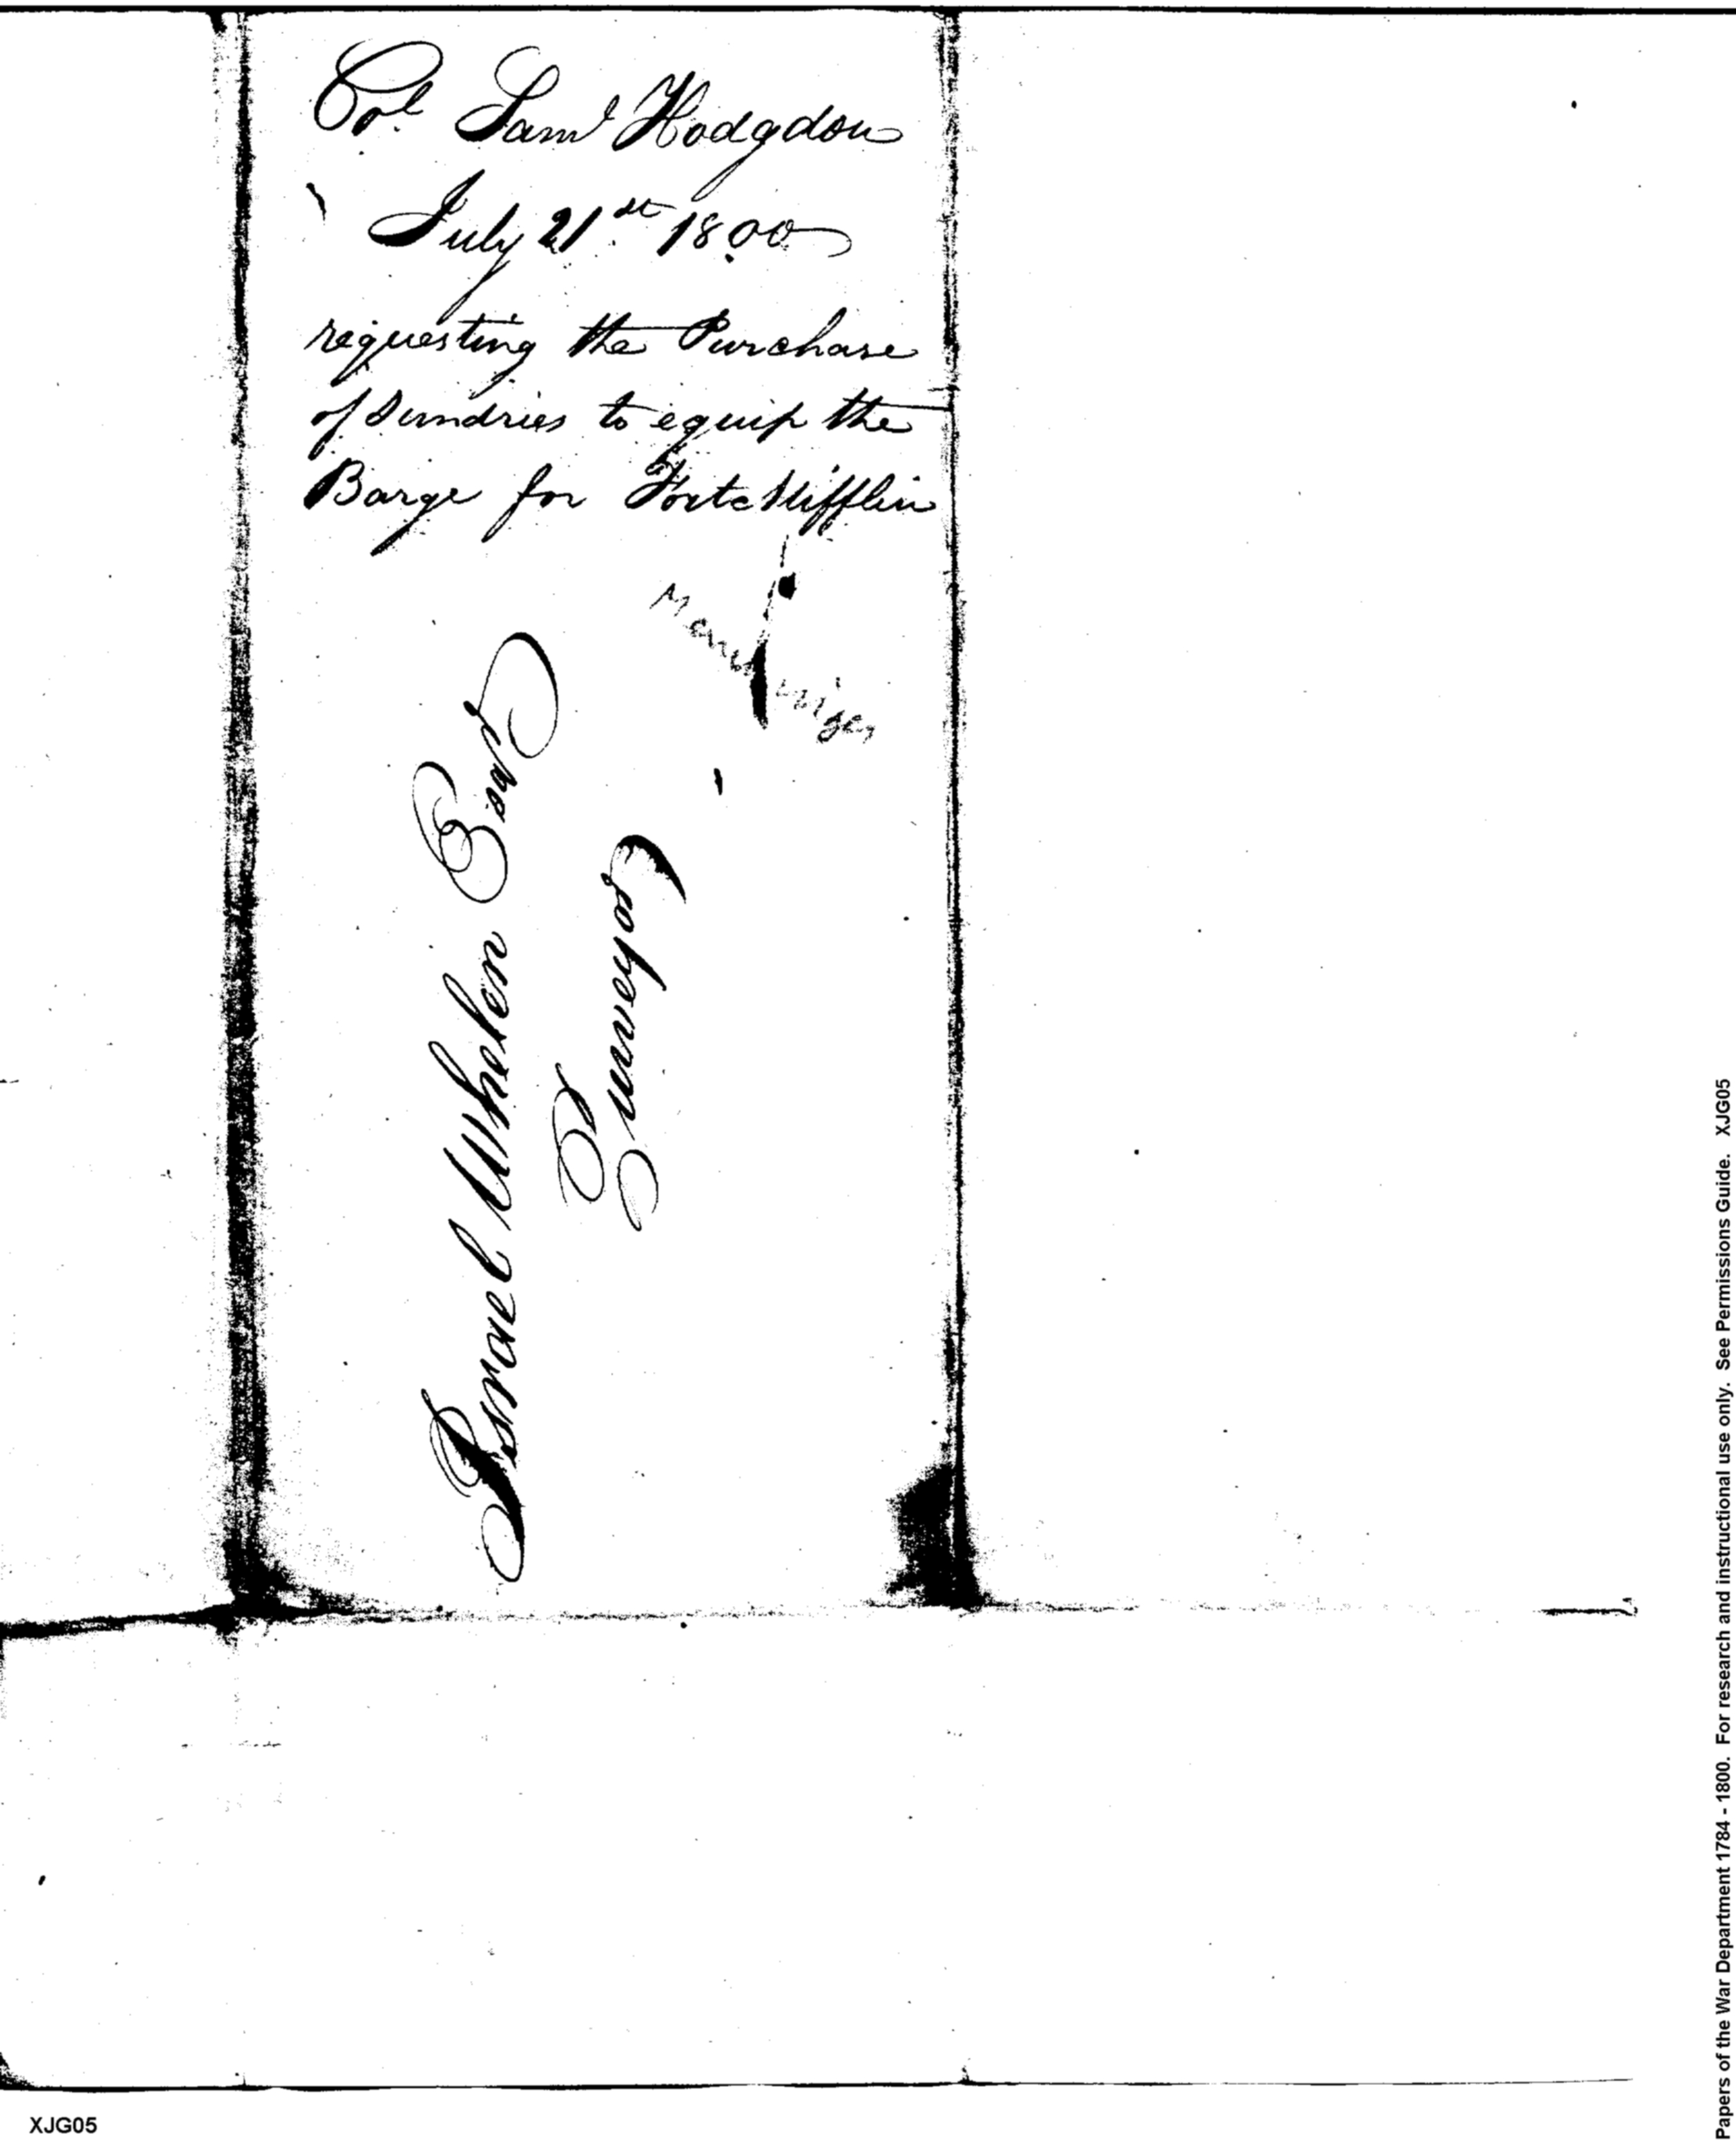 Col Saml Hodgdon
July 21st 1800
requesting the Purchase
of Sundries to equip the
Barge for Fort Mifflin
Israel Whelen Esqr
Surveyor
Papers of the War Department 1784 - 1800. For research and instructional use only. See Permissions Guide. XJG05
XJG05